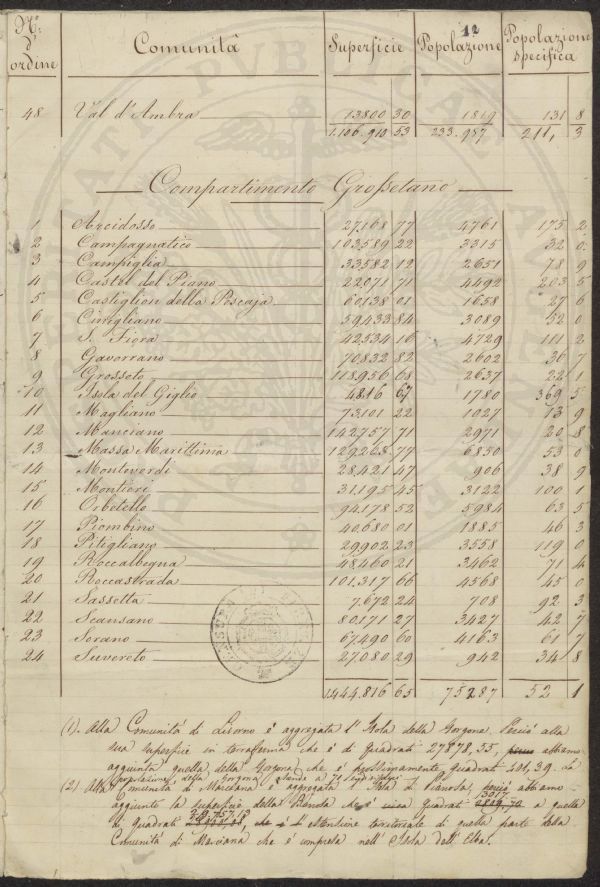 12
N.º d'ordine Comunità Superficie Popolazione Popolazione specifica
48 Val d'Ambra 13800 30 1819 131 8
1.106.910 53 233.957 211, 3
Compartimento Grossetano
1 Arcidosso 27168 77 4761 175 2
2 Campagnatico 103589 22 3315 32 0
3 Campiglia 33582 12 2651 78 9
4 Castel del Piano 22071 71 4492 203 5
5 Castiglion della Pescaja 60138 01 1658 27 6
6 Cinigiano 59433 84 3089 52 0
7 S. Fiora 42534 16 4729 111 2
8 Gavorrano 70832 82 2602 36 7
9 Grosseto 118956 68 2637 22 1
10 Isola del Giglio 4816 67 1780 369 5
11 Magliano 73101 22 1027 13 9
12 Manciano 142757 71 2971 20 8
13 Massa Marittima 129268 77 6850 53 0
14 Monteverdi 28421 47 906 38 9
15 Montieri 31.195 45 3122 100 1
16 Orbetello 94.178 52 5984 63 5
17 Piombino 40.680 01 1885 46 3
18 Pitigliano 29902 23 3558 119 0
19 Roccalbegna 48460 21 3462 71 4
20 Roccastrada 101.317 66 4568 45 0
21 Sassetta 7.672 24 708 92 3
22 Scansano 80171 27 3427 42 7
23 Sorano 67490 60 4163 61 7
24 Suvereto 27080 29 942 34 8
1.444.816 65 75287 52 1
(1). Alla Comunità di Livorno è aggregata l'Isola della Gorgona. Perciò alla
sua superfice in terraferma che è di Quadrati 27878,55, abbiamo
aggiunta quella della Gorgona che è Quadrati 401,39. La
popolazione della Gorgona a 71
(2) Alla Comunità di Marciana è aggregata l'Isola di Pianosa, perciò abbiamo
aggiunto la superficie della Pianosa che è Quadrati 3017 a quella
di Quadrati che è l'estensione territoriale di quella parte della
Comunità di Marciana che è compresa nell'Isola dell'Elba.